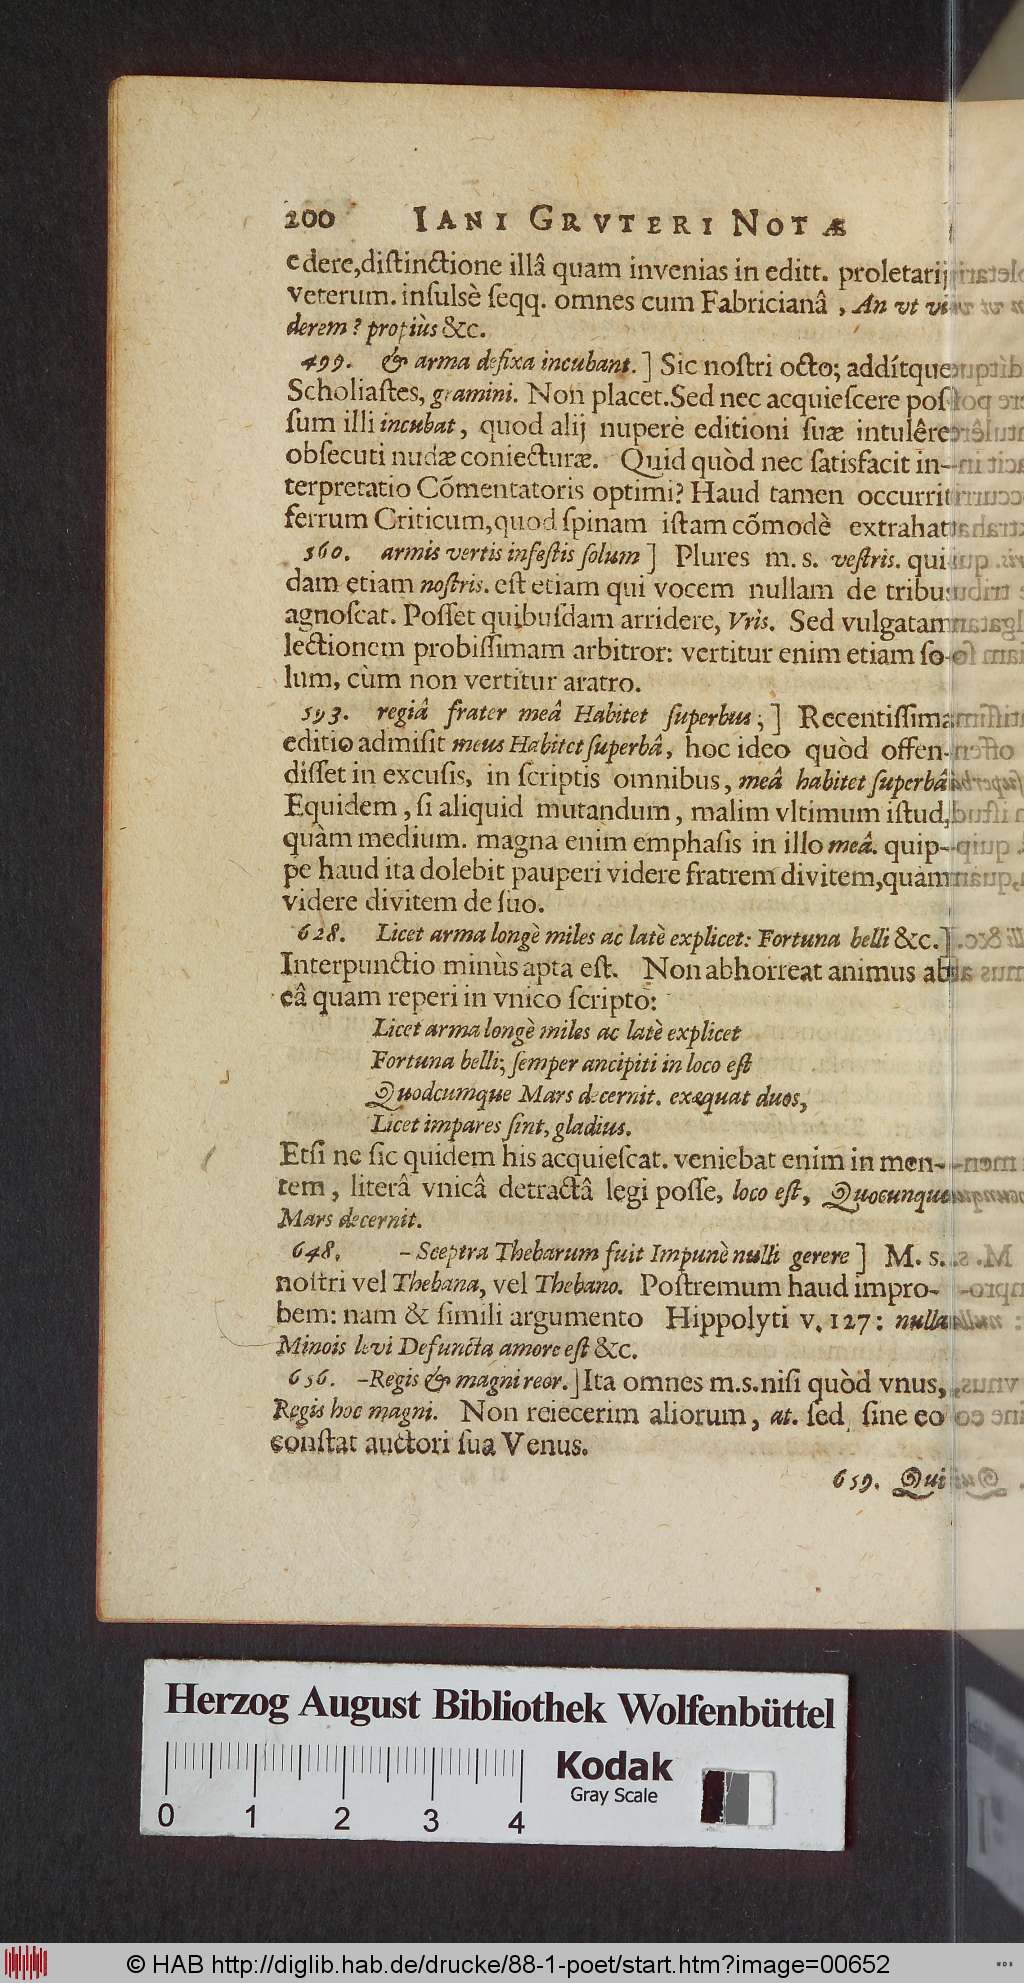 200 IANI GRVTERI NOTÆ
edere, distinctione illâ quam invenias in editt. proletarij
veterum. insulsè seqq. omnes cum Fabricianâ, An vt vi
derem? propiùs &c.
499. & arma defixa incubant.] Sic nostri octo; addítque
Scholiastes, gramini. Non placet. Sed nec acquiescere pos
sum illi incubat, quod alij nuperè editioni suæ intulêre
obsecuti nudæ coniecturæ. Quid quòd nec satisfacit in-
terpretatio Cõmentatoris optimi? Haud tamen occurrit
ferrum Criticum, quod spinam istam cõmodè extrahat
560. armis vertis infestis solum] Plures m. s. vestris. qui
dam etiam nostris. est etiam qui vocem nullam de tribus
agnoscat. Posset quibusdam arridere, Vris. Sed vulgatam
lectionem probissimam arbitror: vertitur enim etiam so-
lum, cùm non vertitur aratro.
593. regiâ frater meâ Habitet superbus;] Recentissima
editio admisit meus Habitet superbâ, hoc ideo quòd offen-
disset in excusis, in scriptis omnibus, meâ habitet superbâ
Equidem, si aliquid mutandum, malim vltimum istud,
quàm medium. magna enim emphasis in illo meâ. quip-
pe haud ita dolebit pauperi videre fratrem divitem, quàm
videre divitem de suo.
628. Licet arma longè miles ac latè explicet: Fortuna belli &c.]
Interpunctio minùs apta est. Non abhorreat animus ab
eâ quam reperi in vnico scripto:
Licet arma longè miles ac latè explicet
Fortuna belli; semper ancipiti in loco est
Quodcumque Mars decernit. exæquat duos,
Licet impares sint, gladius.
Etsi ne sic quidem his acquiescat. veniebat enim in men-
tem, literâ vnicâ detractâ legi posse, loco est, Quocunque
Mars decernit.
648. – Sceptra Thebarum fuit Impunè nulli gerere] M. s.
nostri vel Thebana, vel Thebano. Postremum haud impro-
bem: nam & simili argumento Hippolyti v. 127: nulla
Minois levi Defuncta amore est &c.
656. –Regis & magni reor.] Ita omnes m.s. nisi quòd vnus,
Regis hoc magni. Non reiecerim aliorum, at. sed sine eo
constat auctori sua Venus.
659. Qui
Herzog August Bibliothek Wolfenbüttel
Kodak
Gray Scale
0 1 2 3 4
© HAB http://diglib.hab.de/drucke/88-1-poet/start.htm?image=00652